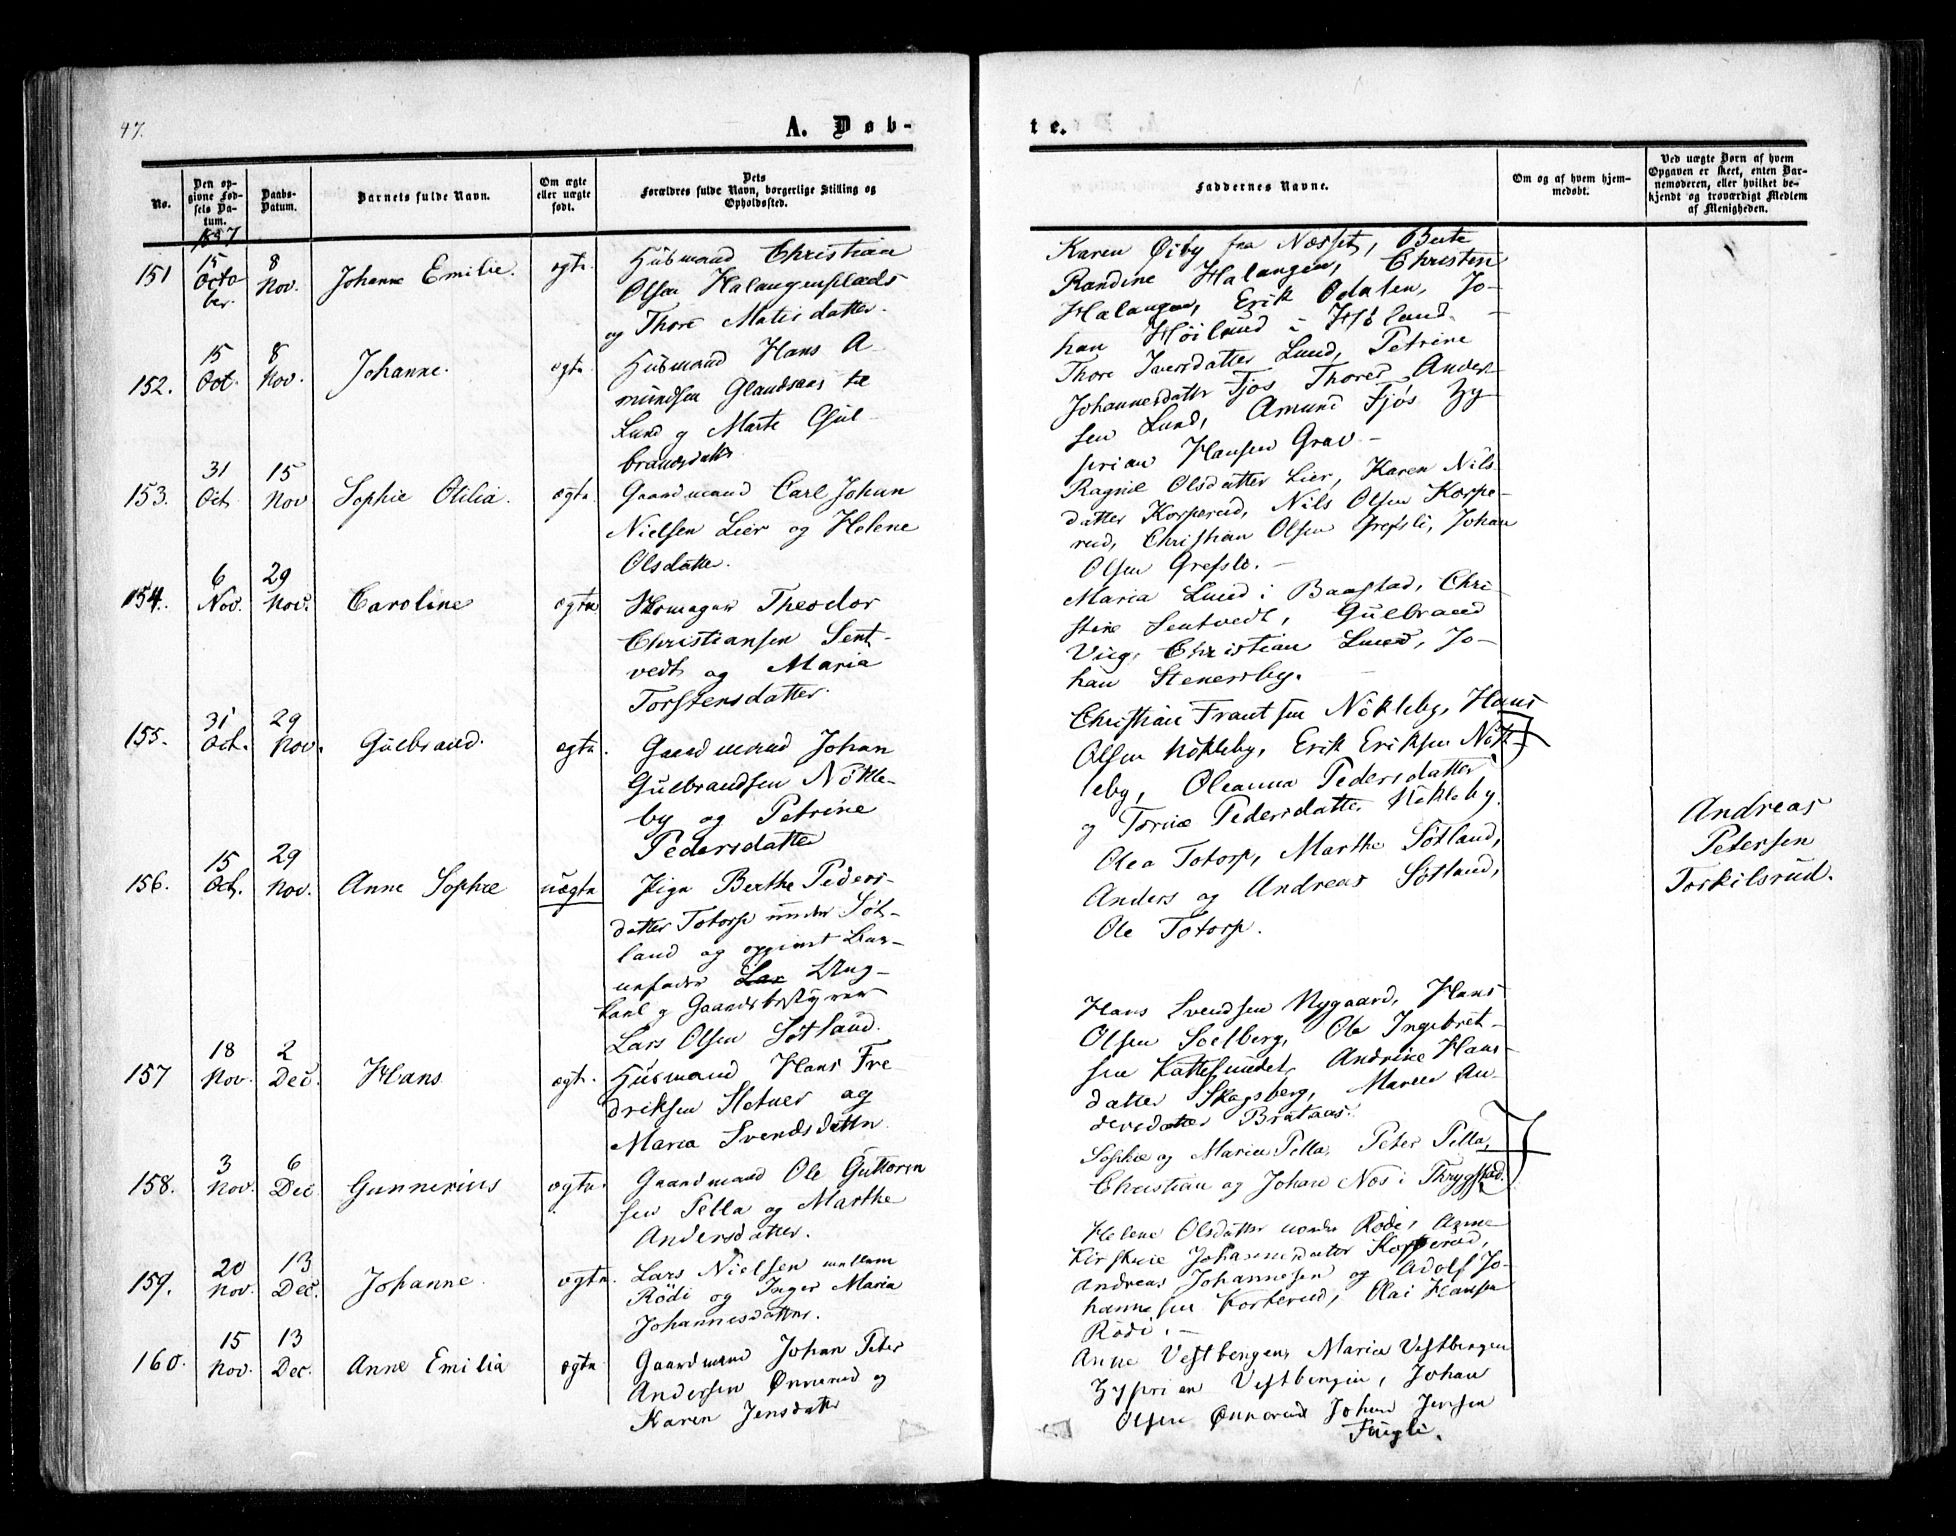 47.
A. Døb-
te.
No.
Den opgivne Fødsels Datum.
Daabs-Datum.
Barnets fulde Navn.
Om ægte eller uægte født.
Dets Forældres fulde Navn, borgerlige Stilling og Opholdssted.
Faddernes Navne.
Om og af hvem hjemmedøbt.
Ved uægte Børn af hvem Opgaven er skeet, enten Barnemoderen, eller hvilket bekjendt og troværdigt Medlem af Menigheden.
1857
151
15 October.
8 Nov.
Johanne Emilie.
ægte.
Husmand Christian
Olsen Halangenplads
og Thore Matisdatter.
Karen Øiby fra Næsset, Berte
Randine Halangen, Christen
Halangen, Erik Odalen, Jo-
han Höiland i Höland.
152.
15 Oct.
8 Nov.
Johanne.
ægte.
Husmand Hans A-
mundsen
Lund og Marte Gul-
brandsdatter
Thore Iversdatter Lund, Petrine
Johannesdatter Fjös Thores Ander-
sen Lund, Amund Fjös Zy-
prian Hansen Grav.
153.
31 Oct.
15 Nov
Sophie Otilia.
ægte.
Gaardmand Carl Johan
Nielsen Lier og Helene
Olsdatter.
Ragnil Olsdatter Lier, Karen Nils
datter Korperud, Nils Olsen Korpe-
rud, Christian Olsen Grefsli, Johan
Olsen Grefsli.
154.
6 Nov.
29 Nov.
Caroline
ægte
Theodor
Christiansen Sent-
vedt og Maria
Torstensdatter.
Maria Lund i Baastad, Chri-
stine Sentvedt, Gulbrand
Vüg, Christian Lund, Jo-
han Stenersby.
155.
31 Oct.
29 Nov.
Gulbrand.
ægte.
Gaardmand Johan
Gulbrandsen Nökle-
by og Petrine
Pedersdatter
Christian Frantsen Nökleby, Hans
Olsen Nökleby, Erik Eriksen Nök-
leby, Oleanna Pedersdatter
og Torine Pedersdatter Nökleby.
156.
15 Oct.
29 Nov.
Anne Sophie
uægte
Pige Berthe Peders-
datter Totorp under Söt-
land og opgivet Bar-
nefader Lar Ung-
karl og Gaardsbestyrer
Lars Olsen Sötland.
Olea Totorp, Marthe Sötland,
Anders og Andreas Sötland,
Ole Totorp.
Andreas
Petersen
Torkilsrud.
157
18 Nov.
2 Dec.
Hans
ægte.
Husmand Hans Fre-
driksen Sletner og
Maria Svendsdatter
Hans Svendsen Nygaard, Hans
Olsen Soelberg, Ole Ingebret-
sen Kattesundet, Andrine Hans-
datter Skogsberg, Maren An-
dersdatter Braataas.
158.
3 Nov.
6 Dec
Gunnerius
ægte.
Gaardmand Ole Guttorm
sen Pella og Marthe
Andersdatter.
Sophie og Maria Pella, Peter Pella,
Christian og Johan Næs i Thrygstad.
159.
20 Nov.
13 Dec.
Johanne.
ægte.
Lars Nielsen mellem
Rödi og Inger Maria
Johannesdatter.
Helene Olsdatter nordre Rödi, Anne
Kirstine Johannesdatter Korperud,
Andreas Johannesen og Adolf Jo-
hannesen Korterud, Olai Hansen
Rödi.
160.
15 Nov.
13 Dec.
Anne Emilia
ægte
Gaardmand Johan Peter
Andersen Ønnerud og
Karen Jensdatter
Anne Vestbergen, Maria Vestbergen
Zyprian Vestbergen, Johan
Olsen Ønnerud Johan Jensen
Fugli.